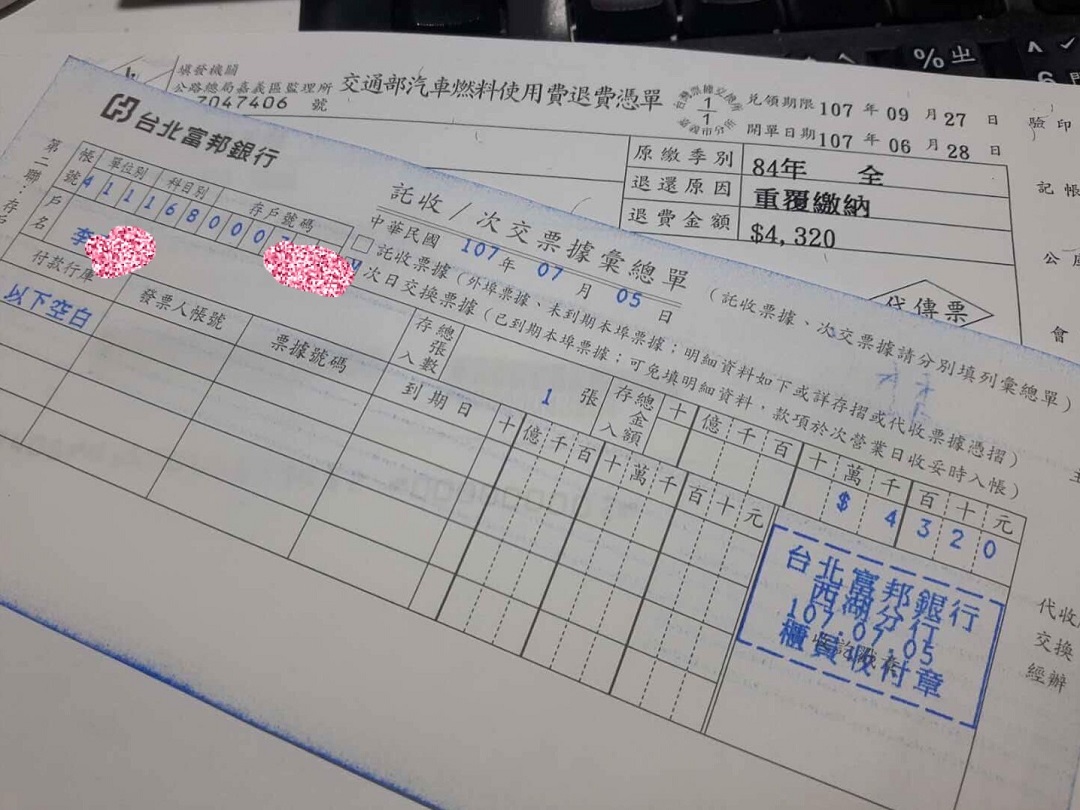 填發機關
公路總局嘉義區監理所 交通部汽車燃料使用費退費憑單
7047406 號
兌領期限 107 年 09 月 27 日
開單日期 107 年 06 月 28 日
驗印
原繳季別 84年 全
退還原因 重覆繳納
退費金額 $4,320
記帳
代傳票
會
台北富邦銀行
託收/次交票據彙總單 (託收票據、次交票據請分別填列彙總單)
中華民國 107 年 07 月 05 日
第二聯:存戶
帳號 單位別 科目別 存戶號碼
41116800
戶名 李
託收票據(外埠票據、未到期本埠票據;明細資料如下或詳存摺或代收票據憑摺)
次日交換票據(已到期本埠票據;可免填明細資料,款項於次營業日收妥時入帳)
存入總張數 1 張
存入總金額 十億千百十萬千百十元
$ 4 3 2 0
付款行庫 發票人帳號 票據號碼 到期日 十億千百十萬千百十元
以下空白
台北富邦銀行
西湖分行
107.07.05
櫃員收付章
代收
交換
經辦